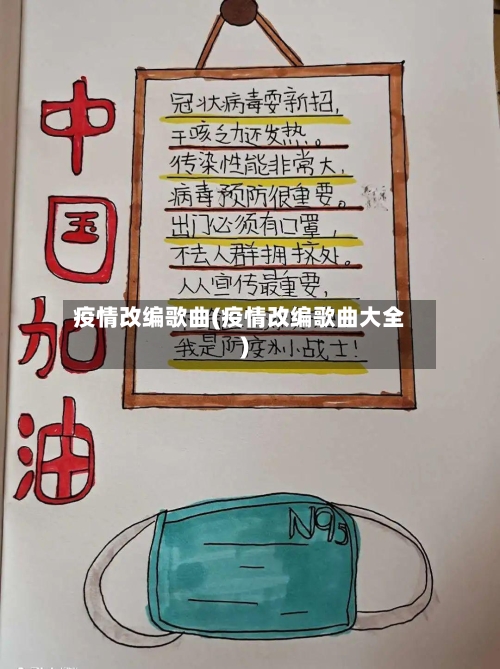 中国加油
冠状病毒耍新招，
干咳乏力还发热。
传染性能非常大，
病毒预防很重要。
出门必须有口罩，
不去人群拥挤处。
人人宣传最重要，
疫情改编歌曲(疫情改编歌曲大全
)
我是防疫小战士！
N95